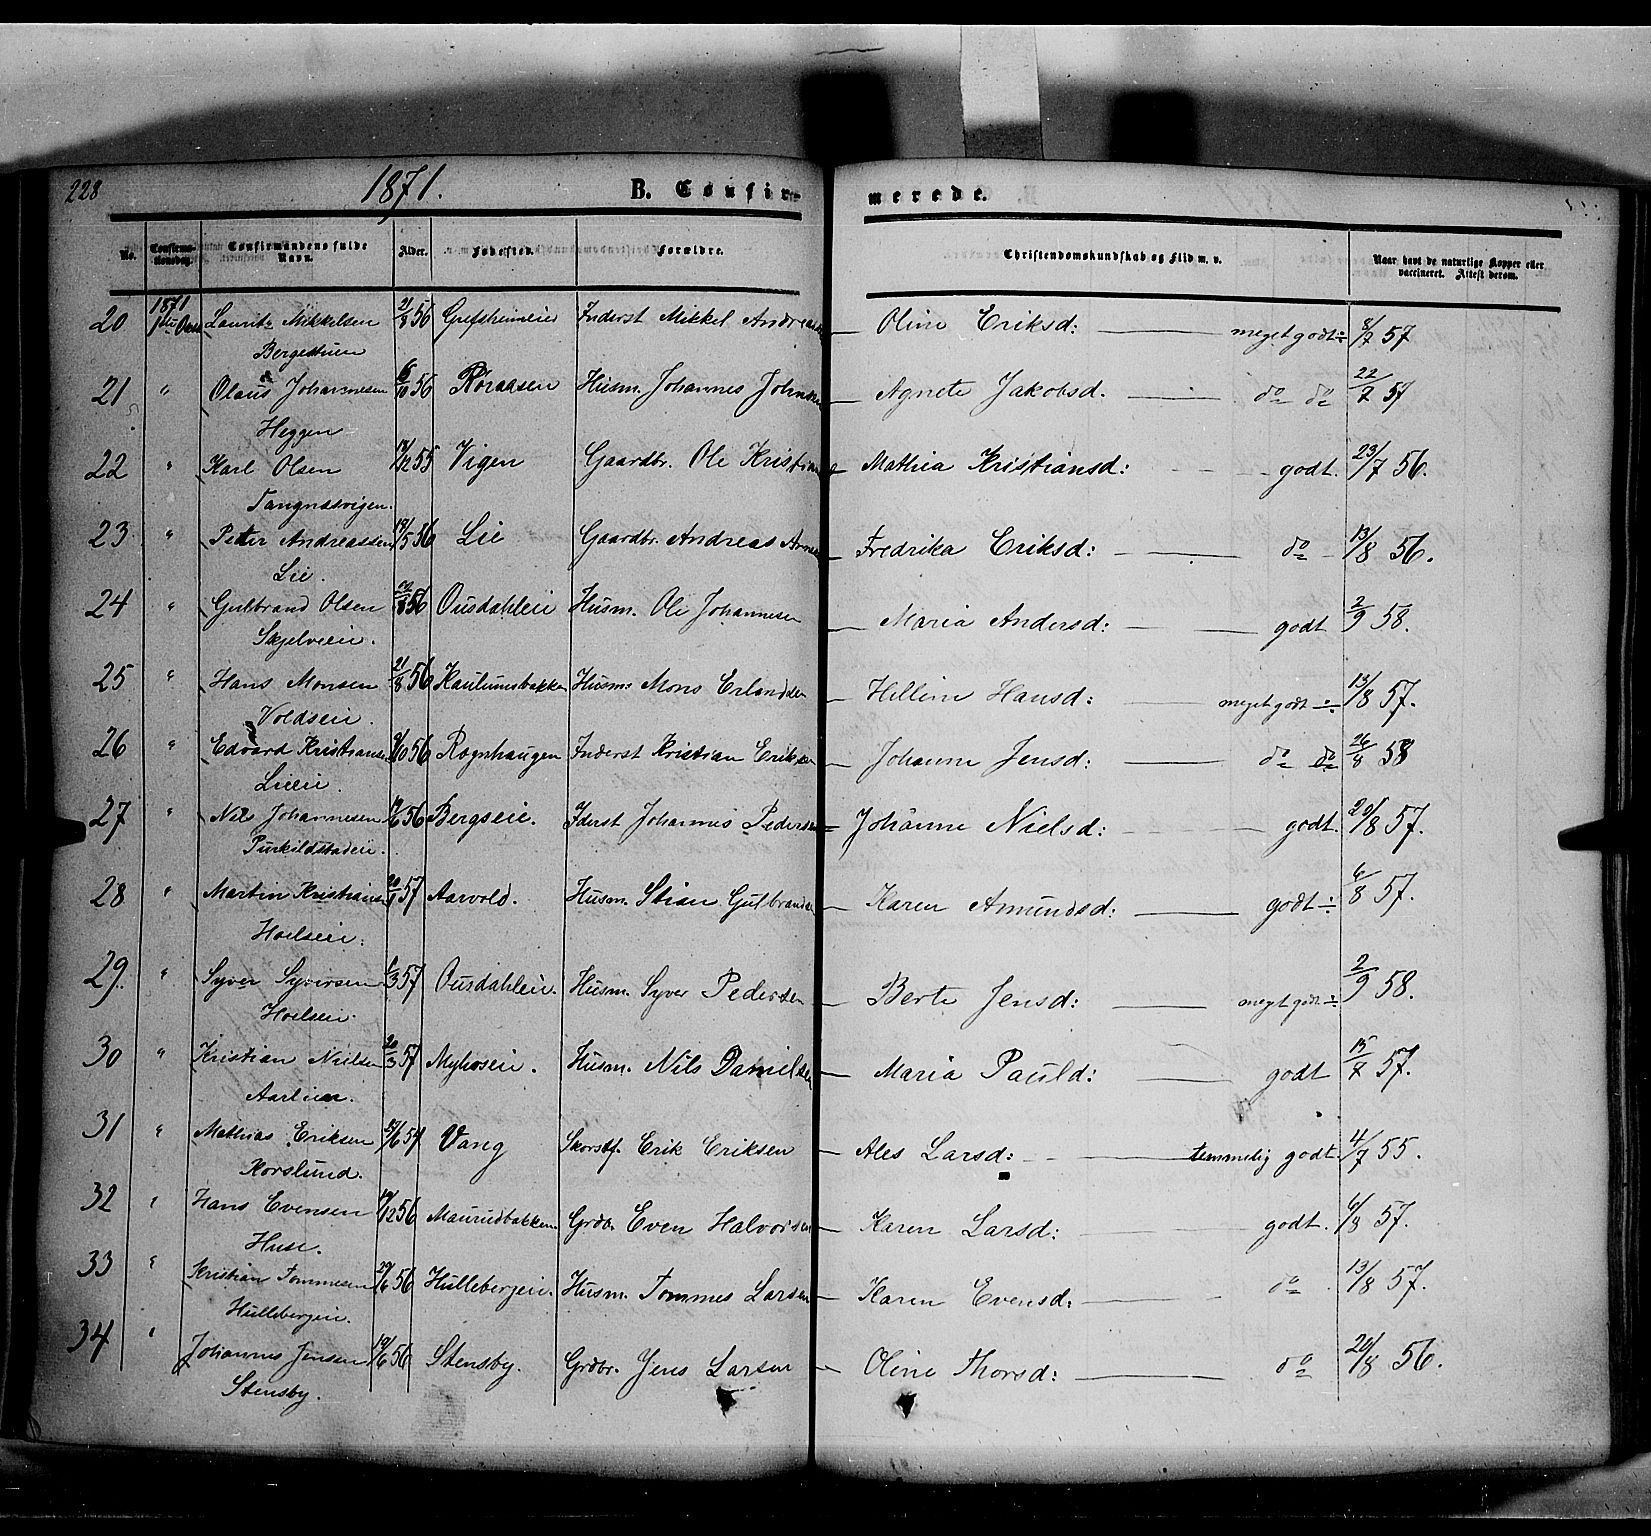 228 1871. B. Confirmerede.
No. Confirmationsdag. Confirmandens fulde Navn. Alder. Fødested. Forældre. Christendomskundskab og Flid m. v. Naar havt de naturlige Kopper eller vaccineret. Attest derom.
20 1871 1ste Octb Laurits Mikkelsen 21/8 56 Grefsheimeier Inderst Mikkel Andreassen — Oline Eriksd: meget godt÷ 8/7 57
Bergestuen
21 " Olaus Johannesen 6/10 56 Roraasen Husm. Johannes Johnsen — Agnete Jakobsd. do do 22/7 57
Heggen
22 " Karl Olsen 17/12 55 Vigen Gaardbr. Ole Kristians — Mathia Kristiansd: godt. 23/7 56.
Tangnæsvigen.
23 " Peter Andreassen 19/5 56 Lie Gaardbr. Andreas — Fredrika Eriksd: do 13/8 56.
Lie.
24 " Gulbrand Olsen 56 Ousdahleie Husm. Ole Johannesen — Maria Andersd: godt 2/9 58.
Skjelveeie.
25 " Hans Monsen 21/8 56 Kaulumsbakken Husm: Mons Erlandsen — Helline Hansd: meget godt ÷ 13/8 57.
Voldseie.
26 " Edvard Kristians /10 56 Rognhaugen Inderst Kristian Eriksen — Johanne Jensd: do do 26/8 58
Lieeie.
27 " Nils Johannesen /6 56 Bergseie. Iderst Johannes Pedersen — Johanne Nielsd: godt. 20/8 57.
Purkildstadeie.
28 " Martin Kristians 20/1 57 Aarvold. Husm. Stian Gulbrandsen — Karen Amundsd: godt÷ 6/8 57.
Hoelseie.
29. " Syver Syversen 1/3 57 Ousdahleie. Husm. Syver Pedersen — Berte Jensd: meget godt÷ 2/9 58.
Hoelseie.
30 " Kristian Nielsen 20/3 57 Myhrseie. Husm. Nils Danielsen — Maria Pauld: godt 15/7 57.
Aarlien.
31 " Mathias Eriksen /6 54 Vang Skorstf. Erik Eriksen — Ales Larsd: temmelig godt. 4/7 55.
Korslund.
32 " Hans Evensen 19/12 56 Maurudbakken Grdbr. Even Halvorsen — Karen Larsd: godt. 6/8 57.
Huse.
33 " Kristian Tommesen 29/6 56 Hullebergeie. Husm. Tommes Larsen — Karen Evensd: do 13/8 57.
Hullebergeie.
34 " Johannes Jensen 19/6 56 Stensby. Grdbr. Jens Larsen — Oline Thorsd: do 20/8 56.
Stensby.